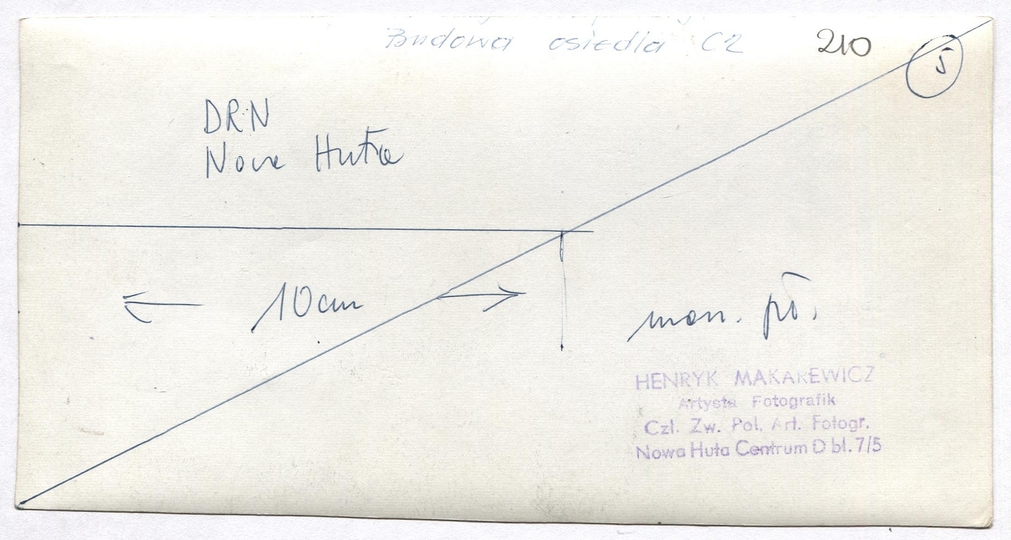 Budowa osiedla C2 210 5
DRN
Nowa Huta
10 cm
HENRYK MAKAREWICZ
Artysta Fotografik
Czł. Zw. Pol. Art. Fotogr.
Nowa Huta Centrum D bl. 7/5